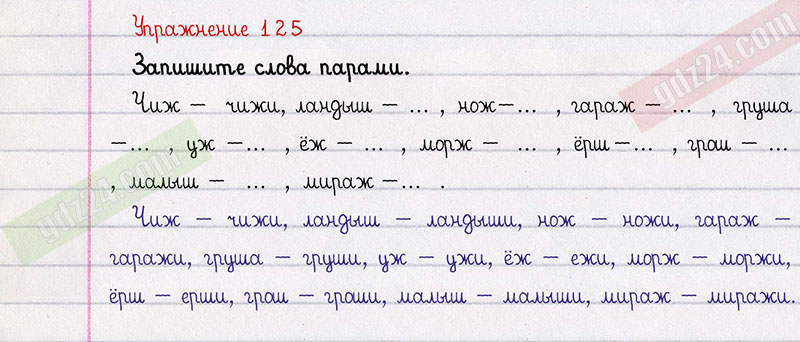 Упражнение 125
gdz24.com
Запишите слова парами.
Чиж – чижи, ландыш – ... , нож–... , гараж – ... , груша
–... , уж –... , ёж – ... , морж – ... , ёрш–... , грош – ...
, малыш – ... , мираж –... .
gdz24.com
Чиж – чижи, ландыш – ландыши, нож – ножи, гараж –
гаражи, груша – груши, уж – ужи, ёж – ежи, морж – моржи,
ёрш – ерши, грош – гроши, малыш – малыши, мираж – миражи.